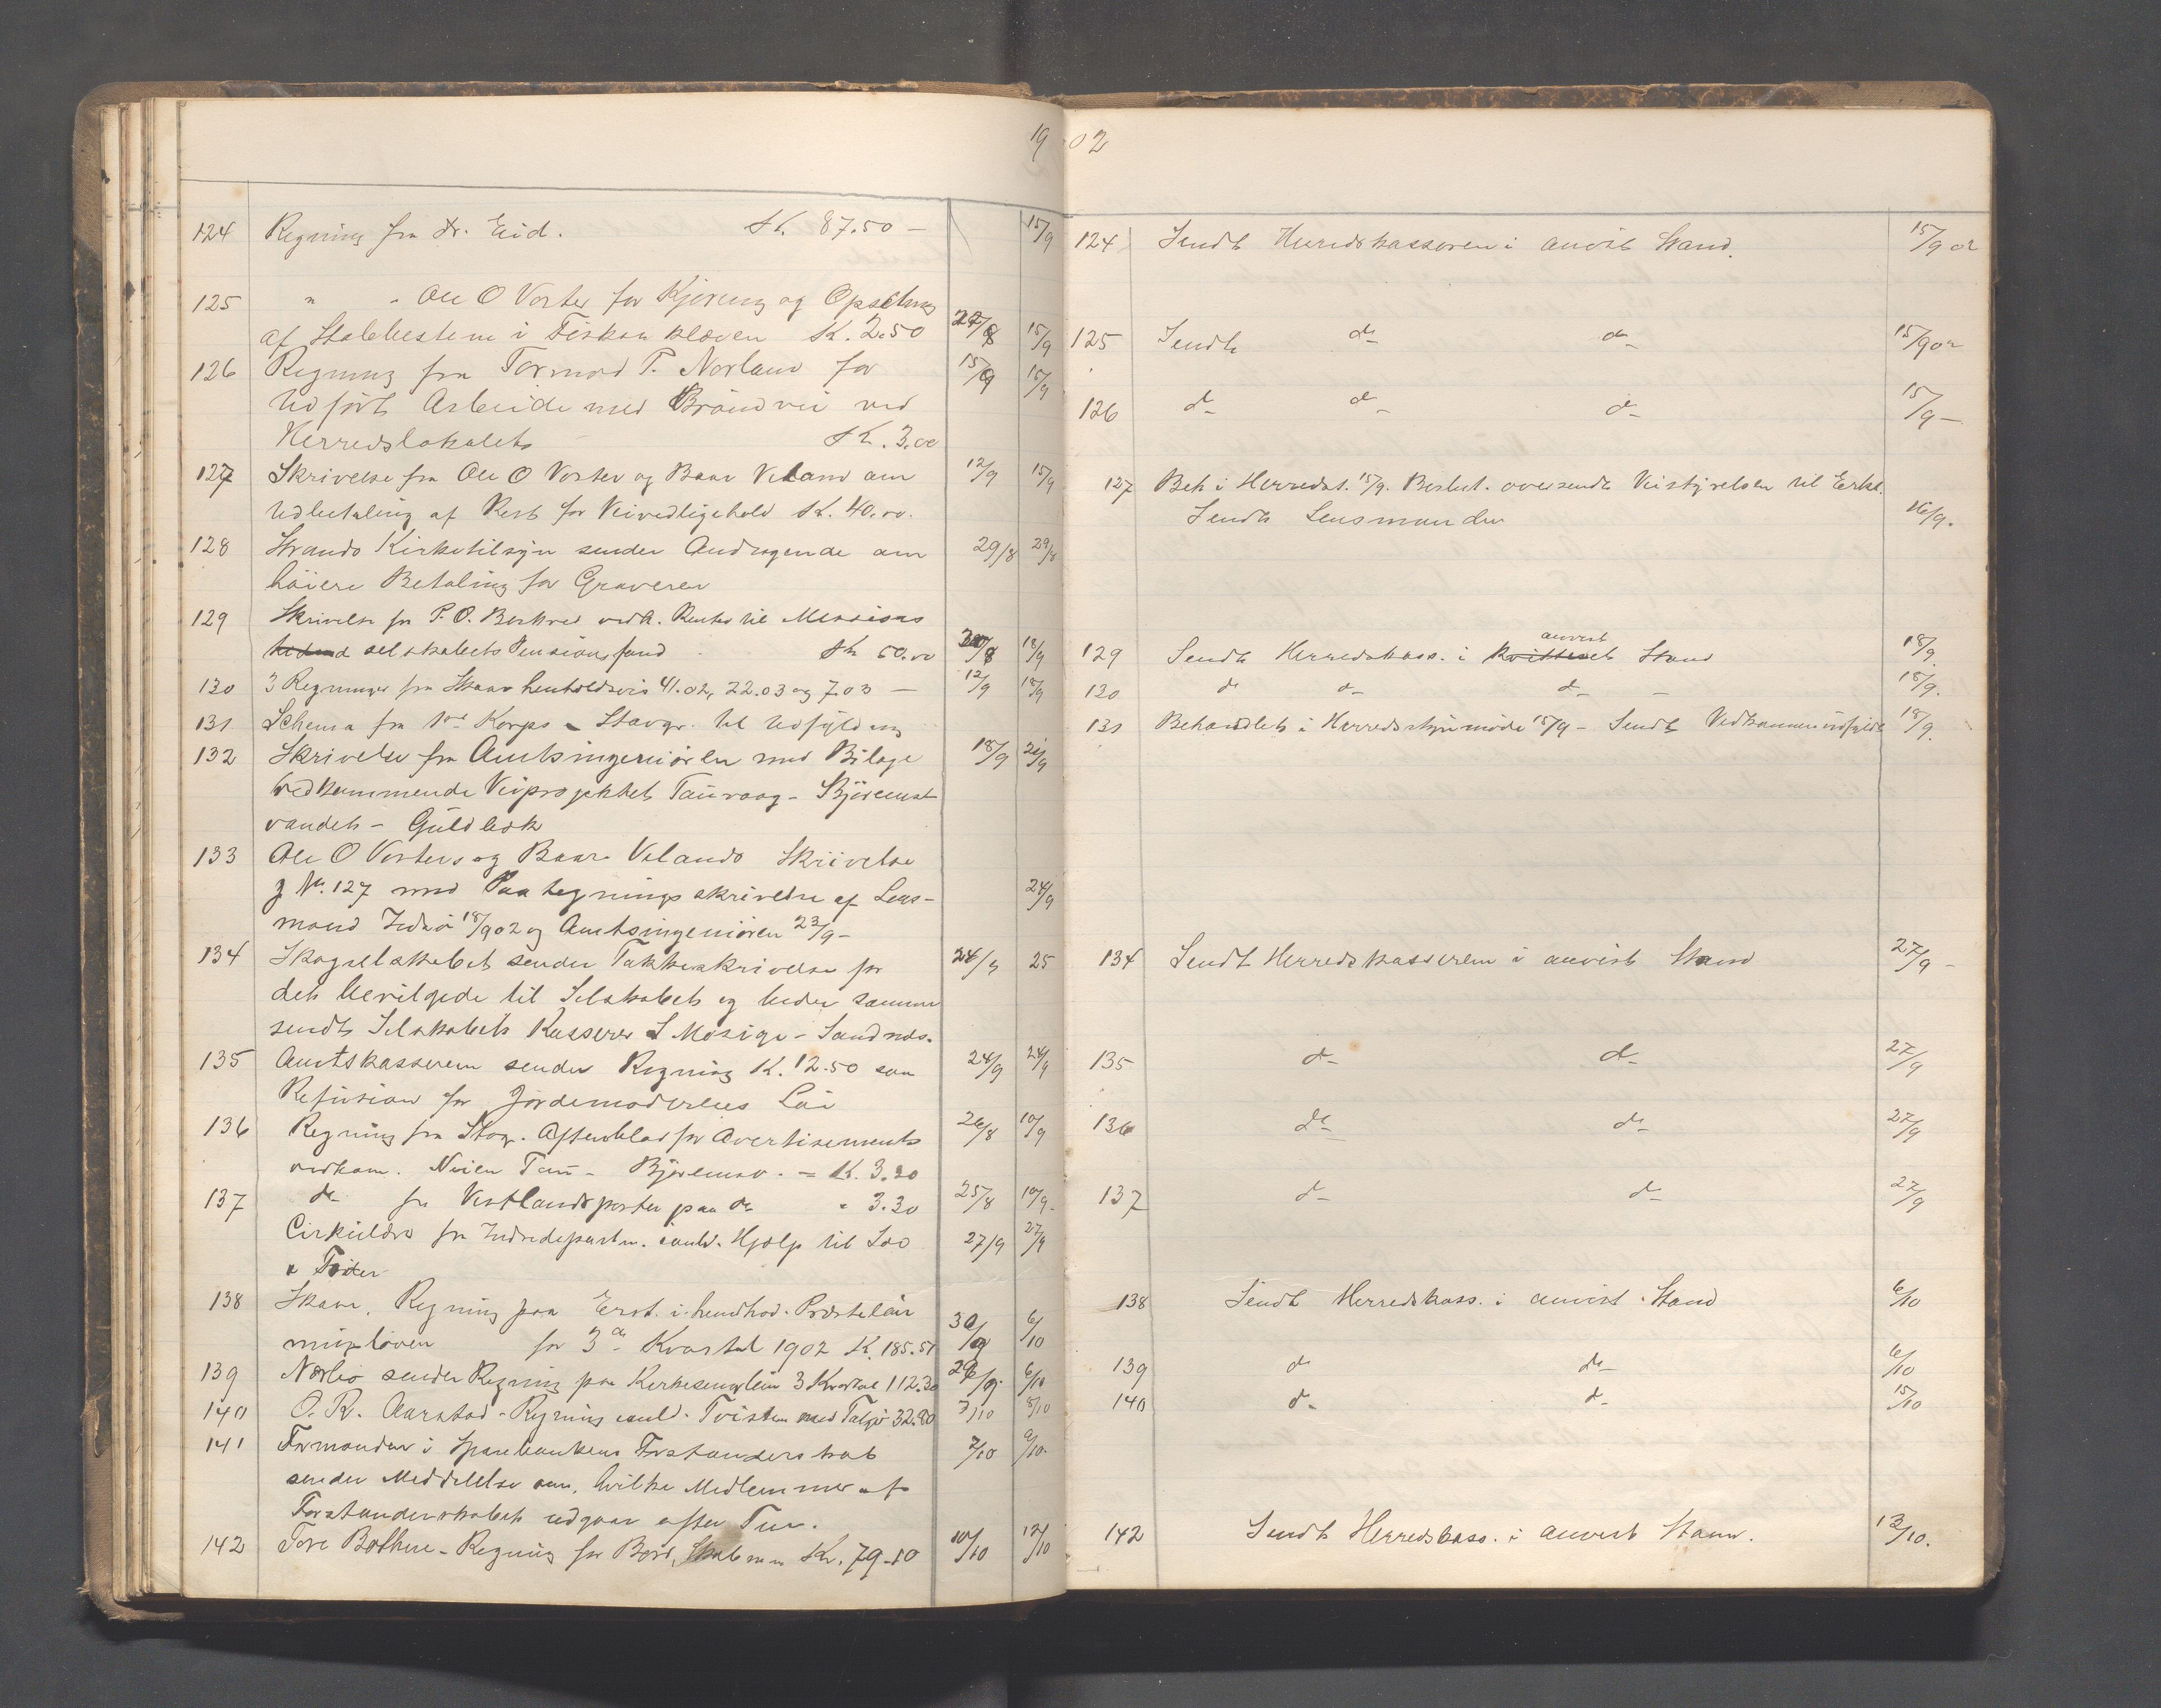 1902
124 Regning fra Dr. Eid. Kr. 87.50 — 15/9
125 " " Ole O Voster for Kjøring og Opsetning
af Stabbestene i Fiskaaklæven K. 2.50 27/8 15/9
126 Regning fra Tormod P. Norland for 15/9 15/9
Udført Arbeide med Brøndvei ved
Herredslokalet Kr. 3.00
127 Skrivelse fra Ole O Voster og Baar Veland om 12/9 15/9
Udbetaling af Rest for Veivedligehold K. 40.00.
128 Strands Kirketilsyn sender Andragende om 29/8 29/8
høiere Betaling for Graveren
129 Skrivelse fra P. O. Barkved vedk. Renter til Missions
selskabets Pensionsfond Kr 50.00 30/8 18/9
130 3 Regninger fra Skaar 41.02, 22.03 og 7.03 — 12/9 18/9
131 Schema fra Korps Stavgr. til Udfyldning
132 Skrivelse fra Amtsingeniøren med Bilage 18/9 21/9
vedkommende Veiprosjektet Tauvaag - Bjøreimst
vandet -
133 Ole O Vosters og Baar Velands Skrivelse
J No. 127 med Paategningsskrivelse af Lens- 24/9
mand 18/9 02 og Amtsingeniøren 23/9 -
134 Skogselskabet sender Takkeskrivelse for 24/9 25
det bevilgede til Selskabet og beder samme
sendt Selskabets Kasserer S. Mosige - Sandnes.
135 Amtskasseren sender Regning K. 12.50 som 24/9 24/9
Refusion for Jordemoderens Løn
136 Regning fra Stavg. Aftenblad for Avertisements 26/8 10/9
vedkom. Veien Tau - Bjøreimsv. = K. 3.20
137 do fra Vestlandsposten paa do " 3.30 25/8 10/9
Cirkulære fra Indredepartm. Hjælp til
27/9 27/9
138 Skaar, Regning paa Erst. i henhold. Præsteløn
for 3de Kvartal 1902 K. 185.51 30/9 6/10
139 Nærbø sender Regning paa Kirkesangerløn 3 Kvartal 112.30 29/9 6/10
140 O. R. Aarstad - Regning Tvisten med Talgje 32.80 7/10 8/10
141 Formanden i Sparebankens Forstanderskab 7/10 9/10
sender Meddelelse om, hvilke Medlemmer af
Forstanderskabet udgaar efter Tur.
142 Tore Bothne - Regning for Bord, Skab m m Kr. 79.10 10/10 12/10
124 Sendt Herredskasseren i anvist Stand. 15/9 02
125 Sendt do do 15/9 02
126 do do do 15/9 —
127 Beh i Herredst. 15/9. Beslut. oversendt Veistyrelsen til Erkl.
Sendt Lensmanden 16/9.
anvist
129 Sendt Herredskass. i kvitteret Stand 18/9
130 do do do — 18/9.
131 Behandlet i Herredsstyrmøde 15/9 - Sendt Vedkommende udfyldt 18/9.
134 Sendt Herredskasseren i anvist Stand 27/9 -
135 do do 27/9
136 do do 27/9
137 do do 27/9
138 Sendt Herredskass. i anvist Stand 6/10
139 do do 6/10
140 do do 15/10
142 Sendt Herredskass. i anvist Stand. 13/10.